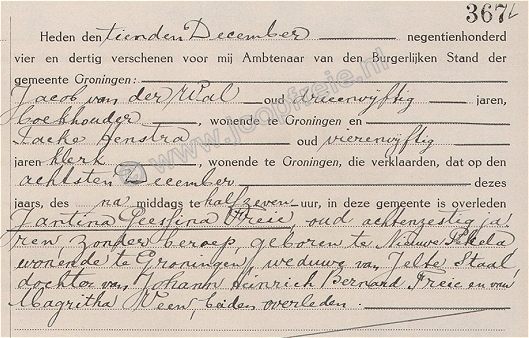 367
Heden den tienden December negentienhonderd
vier en dertig verschenen voor mij Ambtenaar van den Burgerlijken Stand der
gemeente Groningen:
Jacob van der Wal oud drieenvijftig jaren,
boekhouder, wonende te Groningen en
Taeke Henstra oud vierenvijftig
jaren klerk, wonende te Groningen, die verklaarden, dat op den
achtsten December dezes
jaars, des na middags te half zeven uur, in deze gemeente is overleden
Jantina Geessina Freie, oud achtenzestig ja
ren zonder beroep, geboren te Nieuwe Pekela
wonende te Groningen, weduwe van Jelte Staal,
dochter van Johann Heinrich Bernard Freie en van
Magritha Veen, beiden overleden.
www.jcopfreie.nl